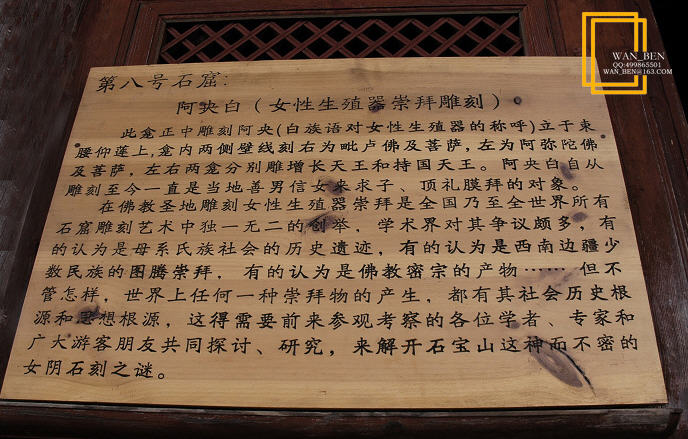 第八号石窟:
阿央白(女性生殖器崇拜雕刻)。
此龛正中雕刻阿央(白族语对女性生殖器的称呼)立于束
腰仰莲上,龛内两侧壁线刻右为毗卢佛及菩萨,左为阿弥陀佛
及菩萨,左右两龛分别雕增长天王和持国天王。阿央白自从
雕刻至今一直是当地善男信女来求子、顶礼膜拜的对象。
在佛教圣地雕刻女性生殖器崇拜是全国乃至全世界所有
石窟雕刻艺术中独一无二的创举,学术界对其争议颇多,有
的认为是母系氏族社会的历史遗迹,有的认为是西南边疆少
数民族的图腾崇拜,有的认为是佛教密宗的产物……但不
管怎样,世界上任何一种崇拜物的产生,都有其社会历史根
源和思想根源,这得需要前来参观考察的各位学者、专家和
广大游客朋友共同探讨、研究,来解开石宝山这神而不密的
女阴石刻之谜。
WAN_BEN
QQ:499865501
WAN_BEN@163.COM